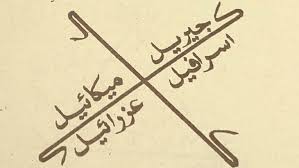 جبريل
اسرافيل
ميكائيل
عزرائيل